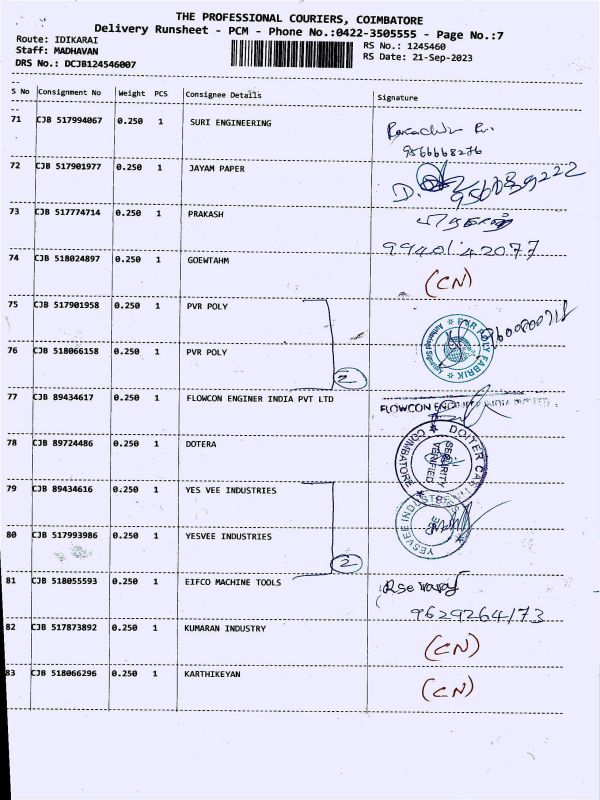 THE PROFESSIONAL COURIERS, COIMBATORE
Delivery Runsheet - PCM - Phone No.:0422-3505555 - Page No.:7
Route: IDIKARAI
RS No.: 1245460
Staff: MADHAVAN
RS Date: 21-Sep-2023
DRS No.: DCJB124546007
S No Consignment No Weight PCS Consignee Details Signature
71 CJB 517994067 0.250 1 SURI ENGINEERING
9566668276
72 CJB 517901977 0.250 1 JAYAM PAPER
73 CJB 517774714 0.250 1 PRAKASH
9940142077
74 CJB 518024897 0.250 1 GOEWTAHM (CN)
75 CJB 517901958 0.250 1 PVR POLY
9600800718
PVR POLY FABRIK
76 CJB 518066158 0.250 1 PVR POLY
2
77 CJB 89434617 0.250 1 FLOWCON ENGINER INDIA PVT LTD
FLOWCON
78 CJB 89724486 0.250 1 DOTERA
COIMBATORE
SECURITY VERIFIED
79 CJB 89434616 0.250 1 YES VEE INDUSTRIES
80 CJB 517993986 0.250 1 YESVEE INDUSTRIES
2
81 CJB 518055593 0.250 1 EIFCO MACHINE TOOLS
9629264173
82 CJB 517873892 0.250 1 KUMARAN INDUSTRY (CN)
83 CJB 518066296 0.250 1 KARTHIKEYAN (CN)